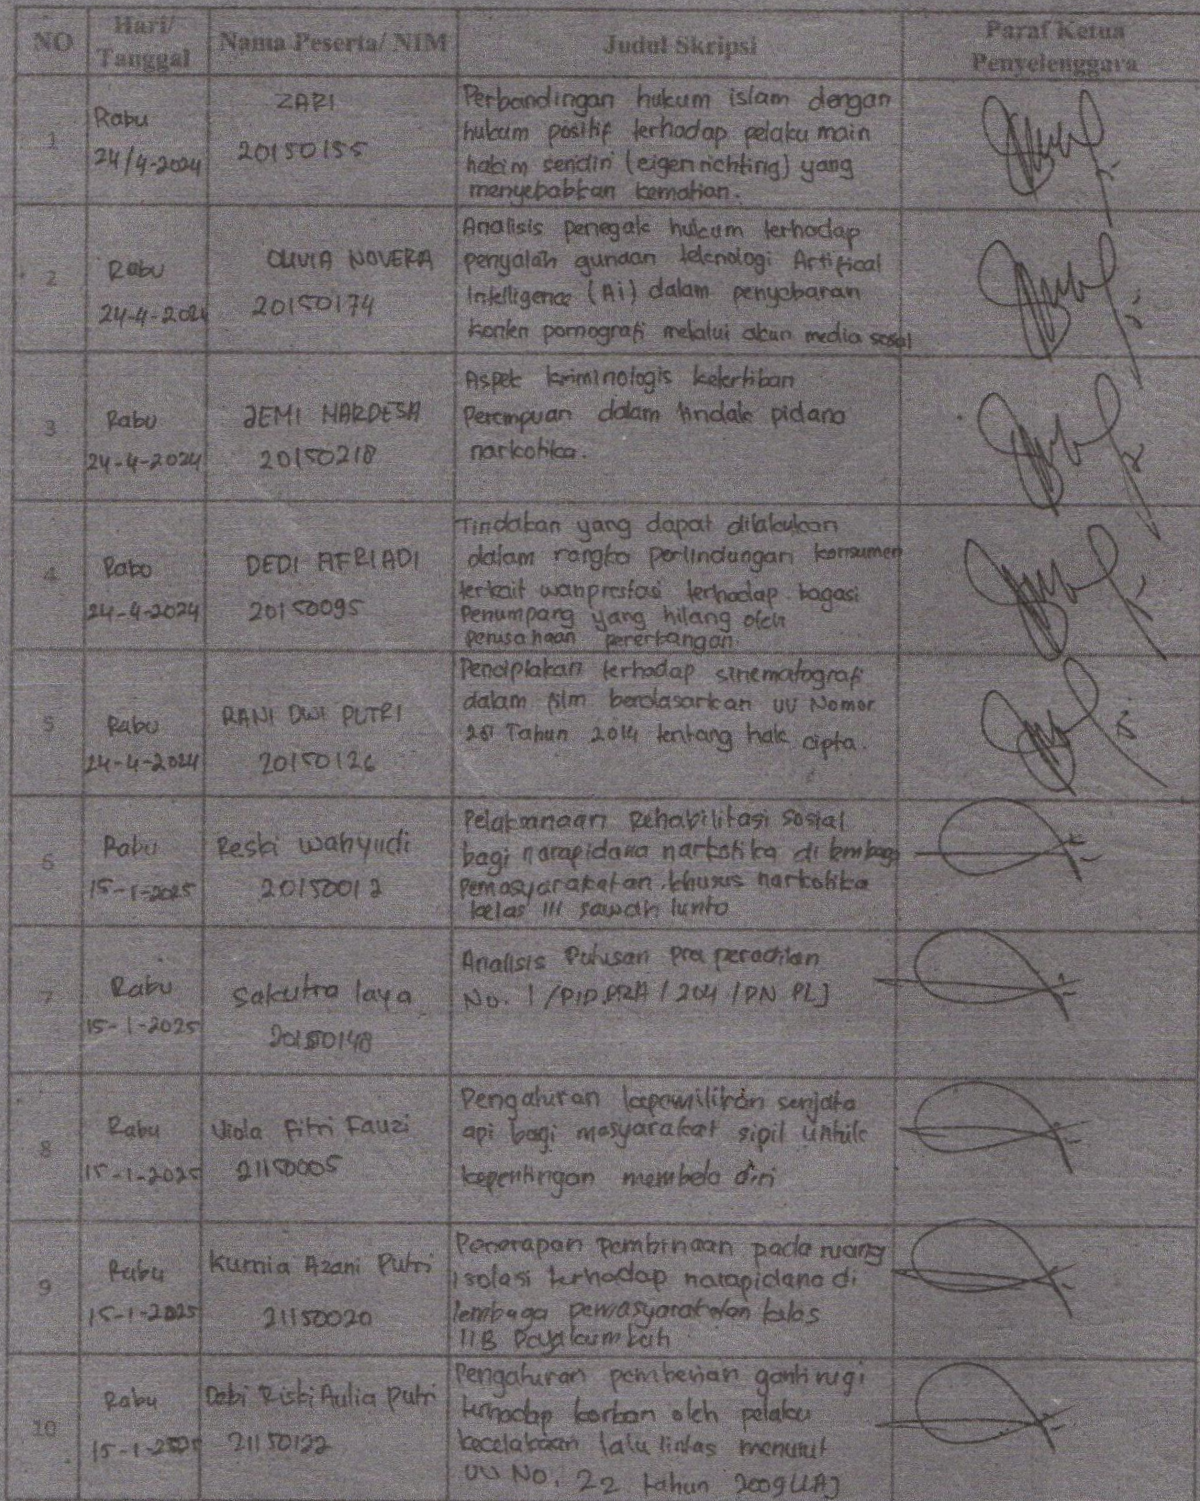 NO Hari/ Tanggal Nama Peserta/ NIM Judul Skripsi Paraf Ketua Penyelenggara
1
Rabu
24/4-2024
ZARI
20150155
Perbandingan hukum islam dengan
hukum positif terhadap pelaku main
hakim sendiri (eigenrichting) yang
menyebabkan kematian.
2
Rabu
24-4-2024
OLIVIA NOVERA
20150174
Analisis penegak hukum terhadap
penyalah gunaan teknologi Artifical
Intelligence (Ai) dalam penyabaran
konten pornografi melalui akun media sosial
3
Rabu
24-4-2024
JEMI HARDESA
20150218
Aspek kriminologis
Perempuan dalam tindak pidana
narkotika.
4
Rabo
24-4-2024
DEDI AFRIADI
20150095
Tindakan yang dapat dilakukan
dalam rangka perlindungan konsumen
terkait wanprestasi terhadap bagasi
Penumpang yang hilang oleh
perusahaan
5
Rabu
24-4-2024
RANI DWI PUTRI
20150126
Penciplakan terhadap sinematografi
dalam film berdasarkan UU Nomor
Tahun 2014 tentang hak cipta.
6
Rabu
15-1-2025
Reski wahyudi
20150012
Pelaksanaan Rehabilitasi sosial
bagi narapidana narkotika di lembaga
Pemasyarakatan khusus narkotika
kelas III sawah lunto
7
Rabu
15-1-2025
Sakutra laya
20150148
Analisis Putusan Pra peradilan
No. 1 /PID.PRA / 204 /PN PLJ
8
Rabu
15-1-2025
Viola Fitri Fauzi
21150005
Pengaturan senjata
api bagi masyarakat sipil untuk
kepentingan membela diri
9
Rabu
15-1-2025
Kurnia Azani Putri
21150020
Penerapan pembinaan pada ruang
isolasi terhadap narapidana di
lembaga pemasyarakatan kelas
IIB Payakumbuh
10
Rabu
15-1-2025
Debi Riski Aulia Putri
21150122
Pengaturan pemberian ganti rugi
terhadap korban oleh pelaku
kecelakaan lalu lintas menurut
UU No. 22 tahun 2009 LLAJ